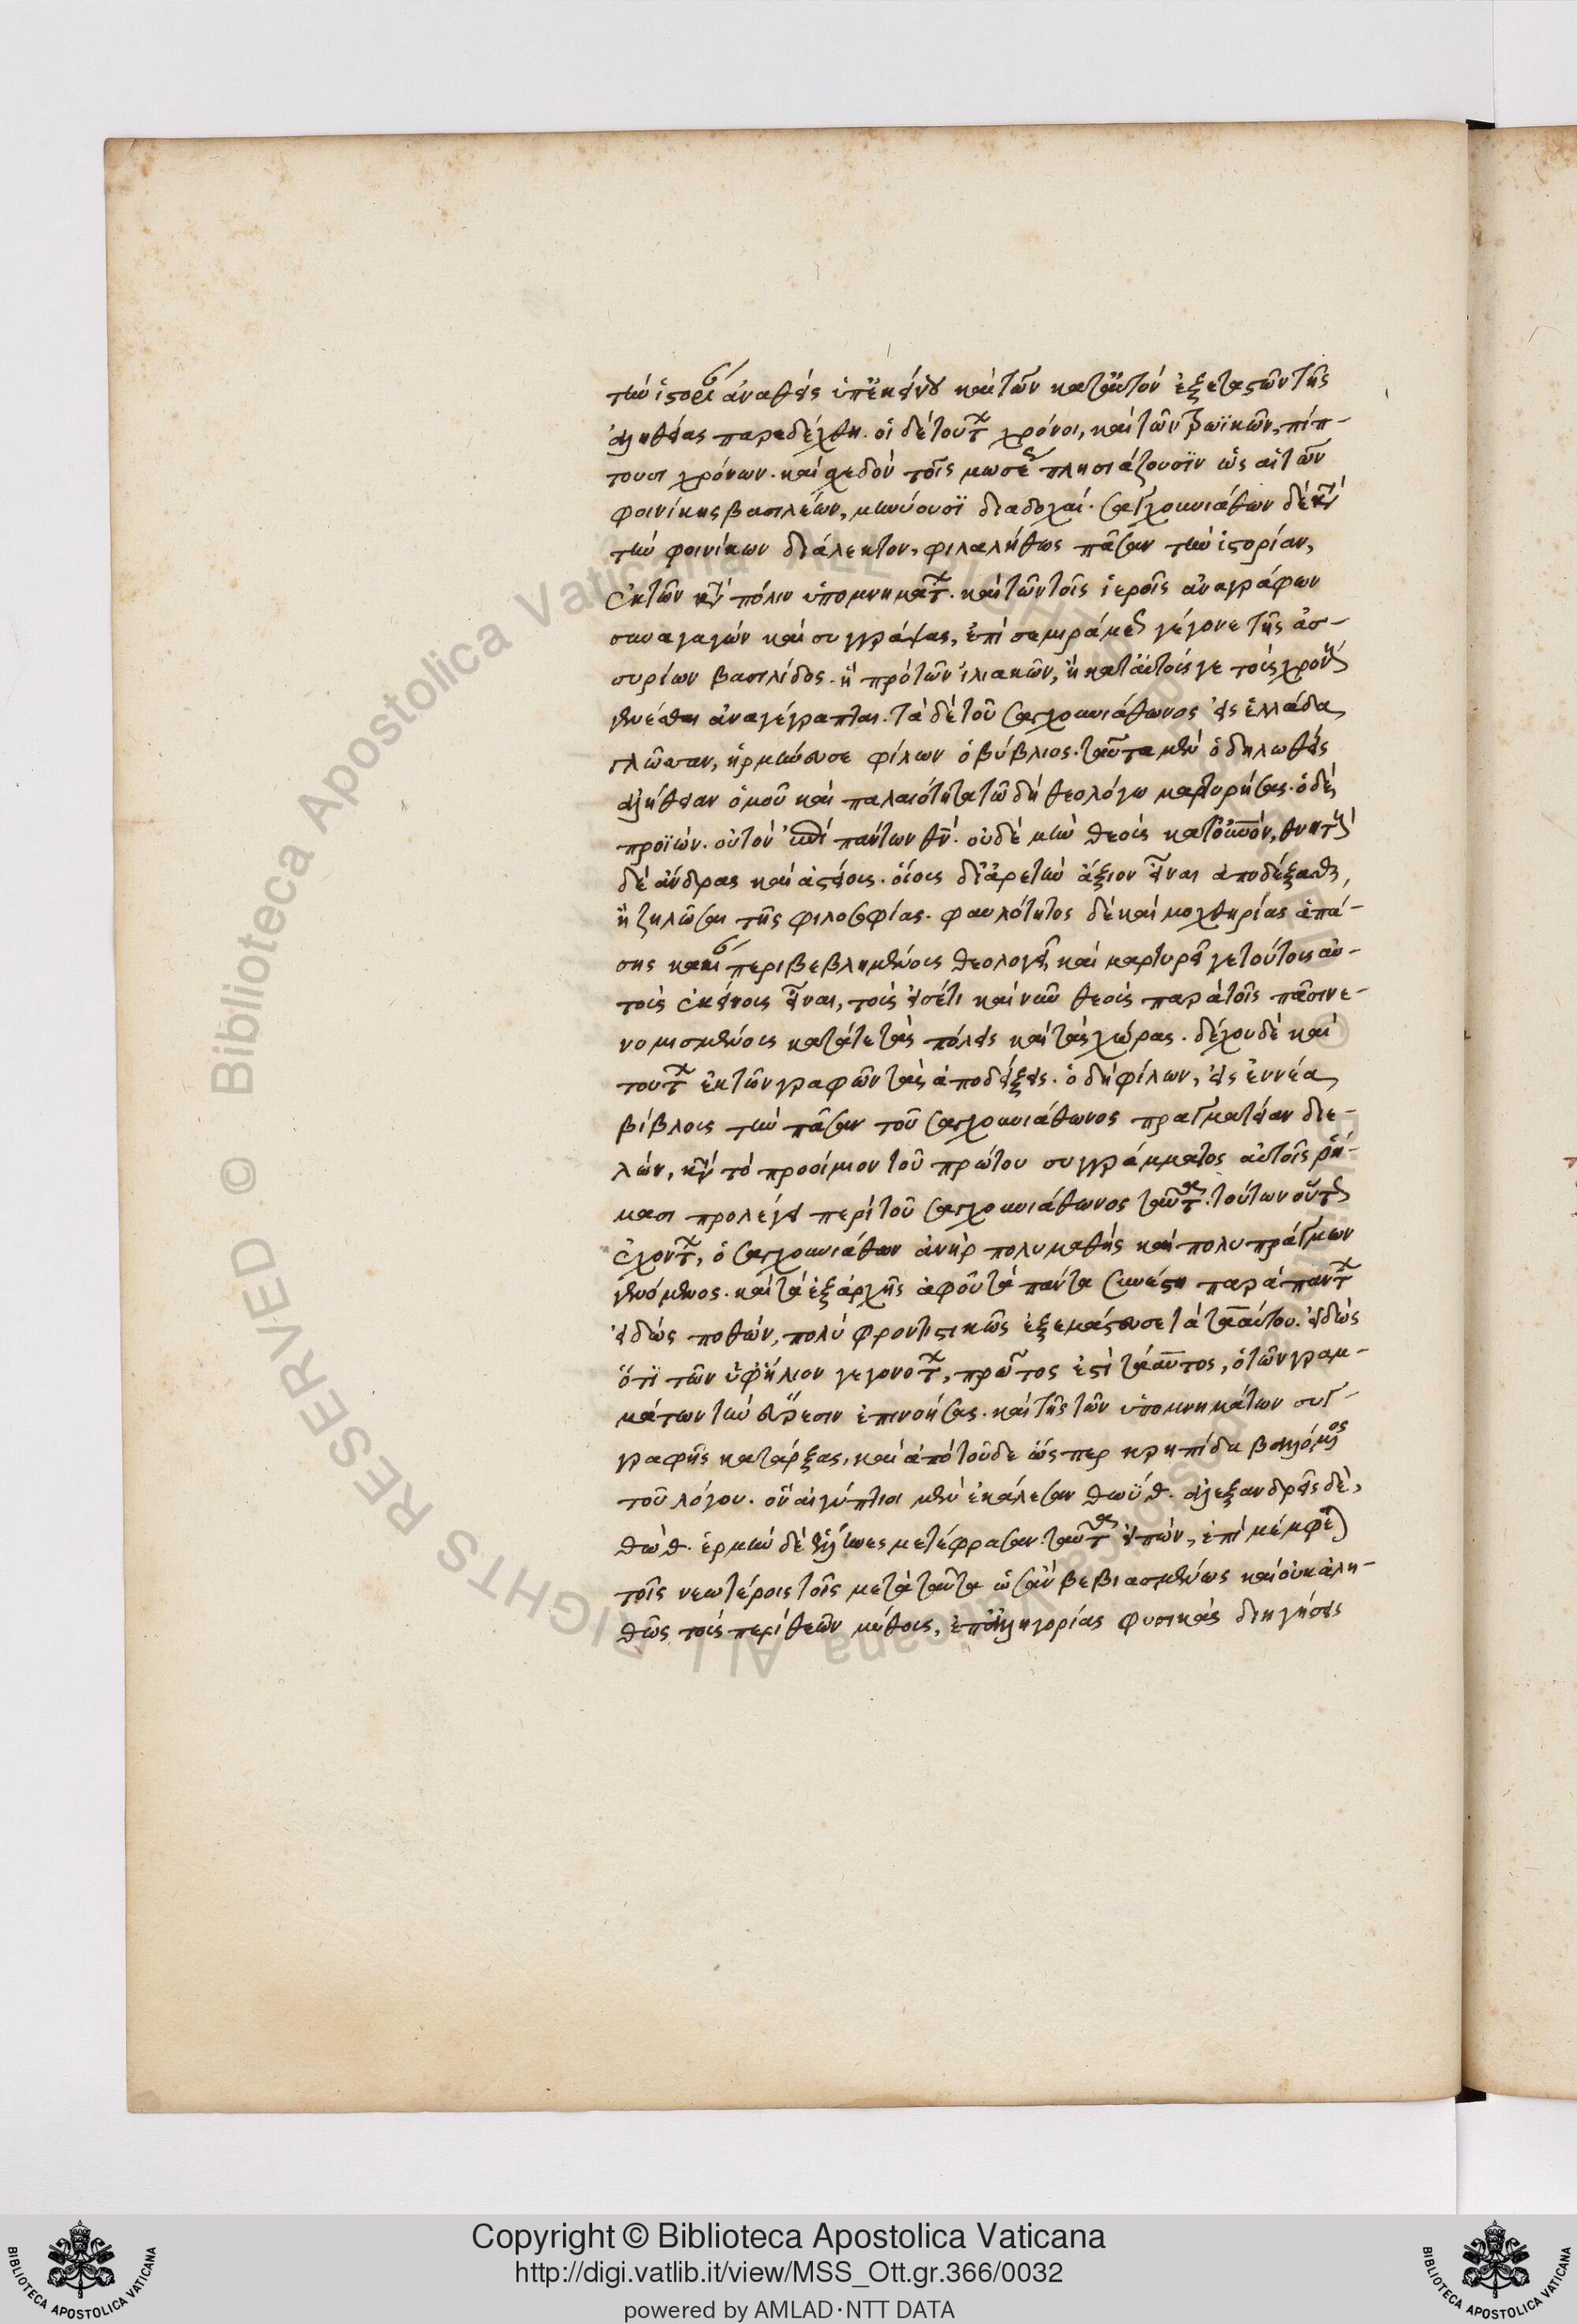 τὴν ἱστορίαν ἀναθεὶς ὑπ' ἐκείνου καὶ τῶν κατ' αὐτὸν ἐξεταστῶν τῆς
ἀληθείας παρεδέχθη. οἱ δὲ τούτων χρόνοι, καὶ τῶν τρωϊκῶν, πίπ-
τουσι χρόνων. καὶ σχεδὸν τοῖς μωσέως πλησιάζουσϊν ὡς αἱ τῶν
φοινίκης βασιλέων, μηνύουσϊ διαδοχαί. σαγχουνιάθων δὲ κατὰ
τὴν φοινίκων διάλεκτον, φιλαλήθως πᾶσαν τὴν ἱστορίαν,
ἐκ τῶν κατὰ πόλιν ὑπομνημάτων. καὶ τῶν τοῖς ἱεροῖς ἀναγράφων
συναγαγὼν καὶ συγγράψας, ἐπὶ σεμιράμεως γέγονε τῆς ἀσ-
συρίων βασιλίδος. ἢ πρὸ τῶν ἰλιακῶν, ἢ κατ' αὐτούς γε τοὺς χρόνους
γενέσθαι ἀναγέγραπται. τὰ δὲ τοῦ σαγχουνιάθωνος εἰς ἑλλάδα
γλῶσσαν, ἡρμήνευσε φίλων ὁ βύβλιος. ταῦτα μὲν ὁ δηλωθεὶς
ἀλήθειαν ὁμοῦ καὶ παλαιότητα τῶ δὴ θεολόγω μαρτυρήσας. ὁ δὲ
προϊὼν. οὐ τὸν ἐπὶ πάντων θν. οὐδὲ μὴν θεοὺς κατ' οὐνὸν, θνητοὺς
δὲ ἄνδρας καὶ ἀστείους. οἵους δι' ἀρετὴν ἄξιον εἶναι ἀποδέξασθαι,
ἢ ζηλῶσαι τῆς φιλοσοφίας. φαυλότητος δὲ καὶ μοχθηρίας ἁπά-
σης κακίαν περιβεβλημένους θεολογεῖ, καὶ μαρτυρεῖ γε τούτους αὐ-
τοὺς ἐκείνους εἶναι, τοὺς εἰσέτι καὶ νῦν θεοὺς παρὰ τοῖς πᾶσι νε-
νομισμένους κατά τε τὰς πόλεις καὶ τὰς χώρας. δέχου δὲ καὶ
τούτων ἐκ τῶν γραφῶν τὰς ἀποδείξεις. ὁ δὴ φίλων, εἰς ἐννέα
βίβλους τὴν πᾶσαν τοῦ σαγχουνιάθωνος πραγματείαν διε-
λών, κατὰ τὸ προοίμιον τοῦ πρώτου συγγράμματος αὐτοῖς ῥή-
μασι προλέγει περὶ τοῦ σαγχουνιάθωνος ταῦτα. τούτων οὕτως
ἐχόντων, ὁ σαγχουνιάθων ἀνὴρ πολυμαθὴς καὶ πολυπράγμων
γενόμενος. καὶ τὰ ἐξ ἀρχῆς ἀφ' οὗ τὰ πάντα συνέστη παρὰ πάντων
εἰδὼς ποθῶν, πολὺ φροντιστικῶς ἐξεμάστευσε τὰ τααύτου. εἰδὼς
ὅτϊ τῶν ὑφ' ἥλιον γεγονότων, πρῶτος ἐστὶ τάαυτος, ὁ τῶν γραμ-
μάτων τὴν εὕρεσιν ἐπινοήσας. καὶ τῆς τῶν ὑπομνημάτων συγ-
γραφῆς κατάρξας, καὶ ἀπὸ τοῦδε ὥσπερ κρηπῖδα βαλόμενος
τοῦ λόγου. ὃν αἰγύπτιοι μὲν ἐκάλεσαν θωΰθ. ἀλεξανδρεῖς δὲ,
θώθ. ἑρμῆν δὲ ἕλληνες μετέφρασαν. ταῦτα εἰπὼν, ἐπιμέμφεται
τοῖς νεωτέροις τοῖς μετὰ ταῦτα ὡσὰν βεβιασμένως καὶ οὐκ ἀλη-
θῶς τοὺς περὶ θεῶν μύθους, ἐπ' ἀλληγορίας φυσικὰς διηγήσεις
Copyright © Biblioteca Apostolica Vaticana
http://digi.vatlib.it/view/MSS_Ott.gr.366/0032
powered by AMLAD·NTT DATA